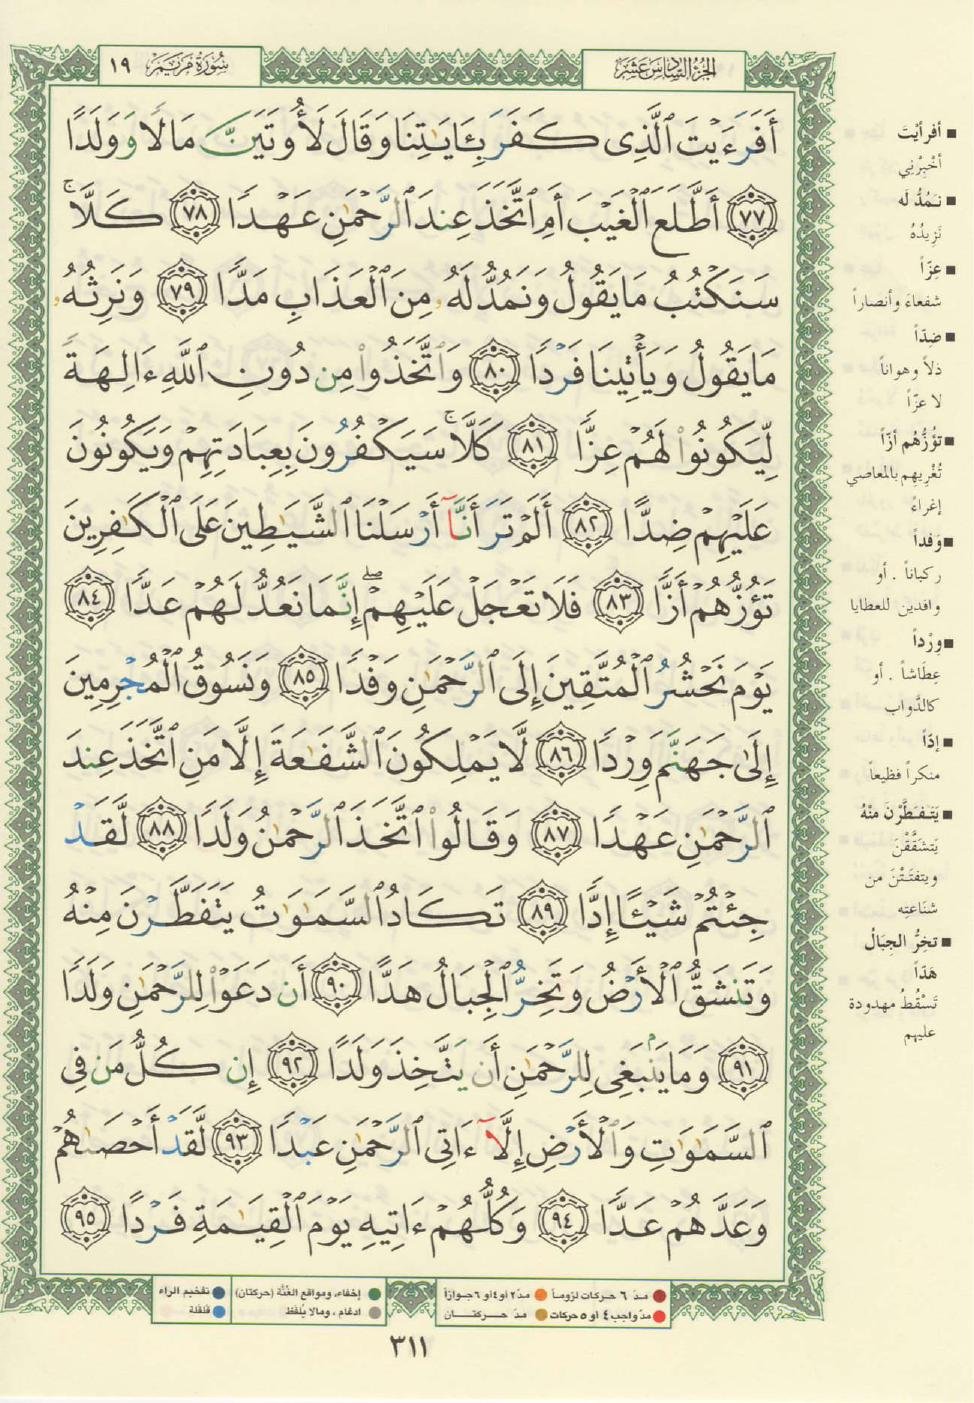 سُورَةُ مَرْيَمَ ١٩
الجُزْءُ السَّادِسَ عَشَرَ
أَفَرَءَيْتَ ٱلَّذِى كَفَرَ بِـَٔايَـٰتِنَا وَقَالَ لَأُوتَيَنَّ مَالًا وَوَلَدًا
٧٧ أَطَّلَعَ ٱلْغَيْبَ أَمِ ٱتَّخَذَ عِندَ ٱلرَّحْمَـٰنِ عَهْدًا ٧٨ كَلَّا ۚ
سَنَكْتُبُ مَا يَقُولُ وَنَمُدُّ لَهُۥ مِنَ ٱلْعَذَابِ مَدًّا ٧٩ وَنَرِثُهُۥ
مَا يَقُولُ وَيَأْتِينَا فَرْدًا ٨٠ وَٱتَّخَذُوا۟ مِن دُونِ ٱللَّهِ ءَالِهَةً
لِّيَكُونُوا۟ لَهُمْ عِزًّا ٨١ كَلَّا ۚ سَيَكْفُرُونَ بِعِبَادَتِهِمْ وَيَكُونُونَ
عَلَيْهِمْ ضِدًّا ٨٢ أَلَمْ تَرَ أَنَّآ أَرْسَلْنَا ٱلشَّيَـٰطِينَ عَلَى ٱلْكَـٰفِرِينَ
تَؤُزُّهُمْ أَزًّا ٨٣ فَلَا تَعْجَلْ عَلَيْهِمْ ۖ إِنَّمَا نَعُدُّ لَهُمْ عَدًّا ٨٤
يَوْمَ نَحْشُرُ ٱلْمُتَّقِينَ إِلَى ٱلرَّحْمَـٰنِ وَفْدًا ٨٥ وَنَسُوقُ ٱلْمُجْرِمِينَ
إِلَىٰ جَهَنَّمَ وِرْدًا ٨٦ لَّا يَمْلِكُونَ ٱلشَّفَـٰعَةَ إِلَّا مَنِ ٱتَّخَذَ عِندَ
ٱلرَّحْمَـٰنِ عَهْدًا ٨٧ وَقَالُوا۟ ٱتَّخَذَ ٱلرَّحْمَـٰنُ وَلَدًا ٨٨ لَّقَدْ
جِئْتُمْ شَيْـًٔا إِدًّا ٨٩ تَكَادُ ٱلسَّمَـٰوَٰتُ يَتَفَطَّرْنَ مِنْهُ
وَتَنشَقُّ ٱلْأَرْضُ وَتَخِرُّ ٱلْجِبَالُ هَدًّا ٩٠ أَن دَعَوْا۟ لِلرَّحْمَـٰنِ وَلَدًا
٩١ وَمَا يَنۢبَغِى لِلرَّحْمَـٰنِ أَن يَتَّخِذَ وَلَدًا ٩٢ إِن كُلُّ مَن فِى
ٱلسَّمَـٰوَٰتِ وَٱلْأَرْضِ إِلَّآ ءَاتِى ٱلرَّحْمَـٰنِ عَبْدًا ٩٣ لَّقَدْ أَحْصَىٰهُمْ
وَعَدَّهُمْ عَدًّا ٩٤ وَكُلُّهُمْ ءَاتِيهِ يَوْمَ ٱلْقِيَـٰمَةِ فَرْدًا ٩٥
أفرأيْتَ
أخْبِرْنِي
نَمُدُّ لَه
نَزِيدُهُ
عِزّاً
شفعاءَ وأنصاراً
ضِدّاً
ذلاً وهواناً
لا عزّاً
تؤُزُّهُم أزّاً
تُغْرِيهم بالمعاصي
إغراءً
وَفداً
ركباناً . أو
وافدين للعطايا
وِرْداً
عِطَاشاً . أو
كالدَّواب
إدّاً
منكراً فظيعاً
يَتَفَطَّرْنَ مِنْهُ
يَتشقَّقْنَ
ويتفتَّتْنَ من
شنَاعتِه
تخِرُّ الجِبَالُ
هَدّاً
تَسْقُطُ مهدودة
عليهم
مدّ ٦ حركات لزوماً مدّ ٢ أو ٤ أو ٦ جوازاً
مدّ واجب ٤ أو ٥ حركات مدّ حركتان
إخفاء، ومواقع الغُنَّة (حركتان) تفخيم الراء
ادغام ، ومالا يُلفَظ قلقلة
٣١١